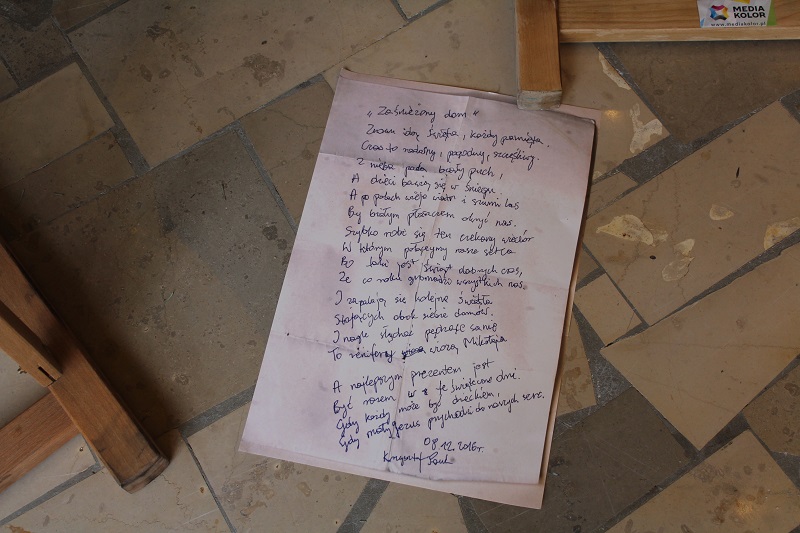 MEDIA
KOLOR
www.mediakolor.pl
„Zaśnieżony dom"
Znowu idą święta, każdy pamięta.
Czas to radosny, pogodny, szczęśliwy.
Z nieba pada biały puch,
A dzieci bawią się w śniegu.
A po polach wieje wiatr i szumi las
By białym płaszczem okryć nas.
Szybko robi się ten czekany wieczór
W którym połączymy nasze serca
Bo taki jest świąt dobrych czas,
Że co roku gromadzi wszystkich nas.
I zapalają się kolejne światła
Stojących obok siebie domów.
I nagle słychać pędzące sanie
To renifery wiozą Mikołaja
A najlepszym prezentem jest
Być razem w te świąteczne dni.
Gdy każdy może być dzieckiem,
Gdy mały Jezus przychodzi do naszych serc.
08.12.2016r.